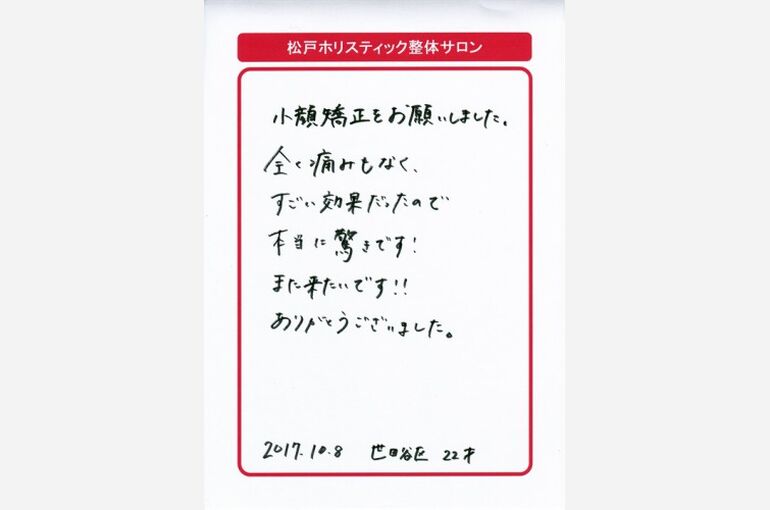 松戸ホリスティック整体サロン
小顔矯正をお願いしました。
全く痛みもなく、
すごい効果だったので
本当に驚きです!
また来たいです!!
ありがとうございました。
2017.10.8 世田谷区 22才